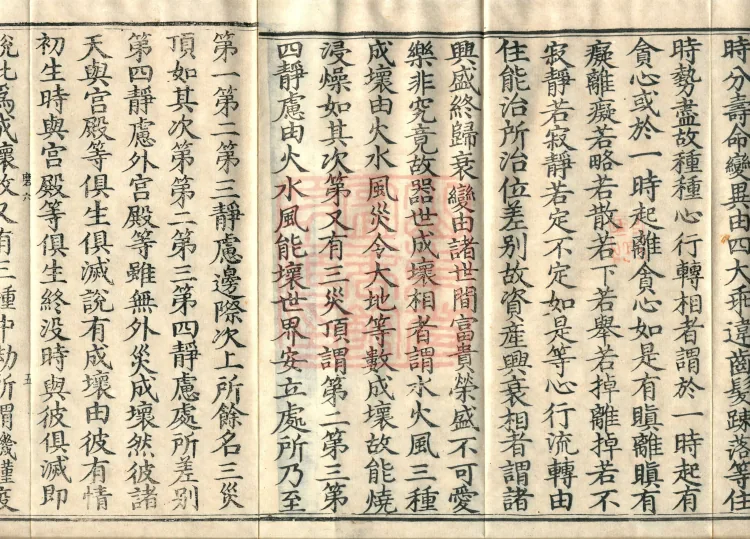 時分壽命變異由四大乖違齒髮踈落等住
時勢盡故種種心行轉相者謂於一時起有
貪心或於一時起離貪心如是有瞋離瞋有
癡離癡若略若散若下若舉若掉離掉若不
寂靜若寂靜若定不定如是等心行流轉由
住能治所治位差別故資産興衰相者謂諸
興盛終歸衰變由諸世間富貴榮盛不可愛
樂非究竟故器世成壞相者謂水火風三種
成壞由火水風災令大地等數成壞故能燒
浸燥如其次第又有三災頂謂第二第三第
四靜慮由火水風能壞世界安立處所乃至
第一第二第三靜慮邊際次上所餘名三災
頂如其次第第二第三第四靜慮處所差別
第四靜慮外宮殿等雖無外災成壞然彼諸
天與宮殿等俱生俱滅說有成壞由彼有情
初生時與宮殿等俱生終没時與彼俱滅即
六
五
說此爲成壞故又有三種中劫所謂饑饉疫